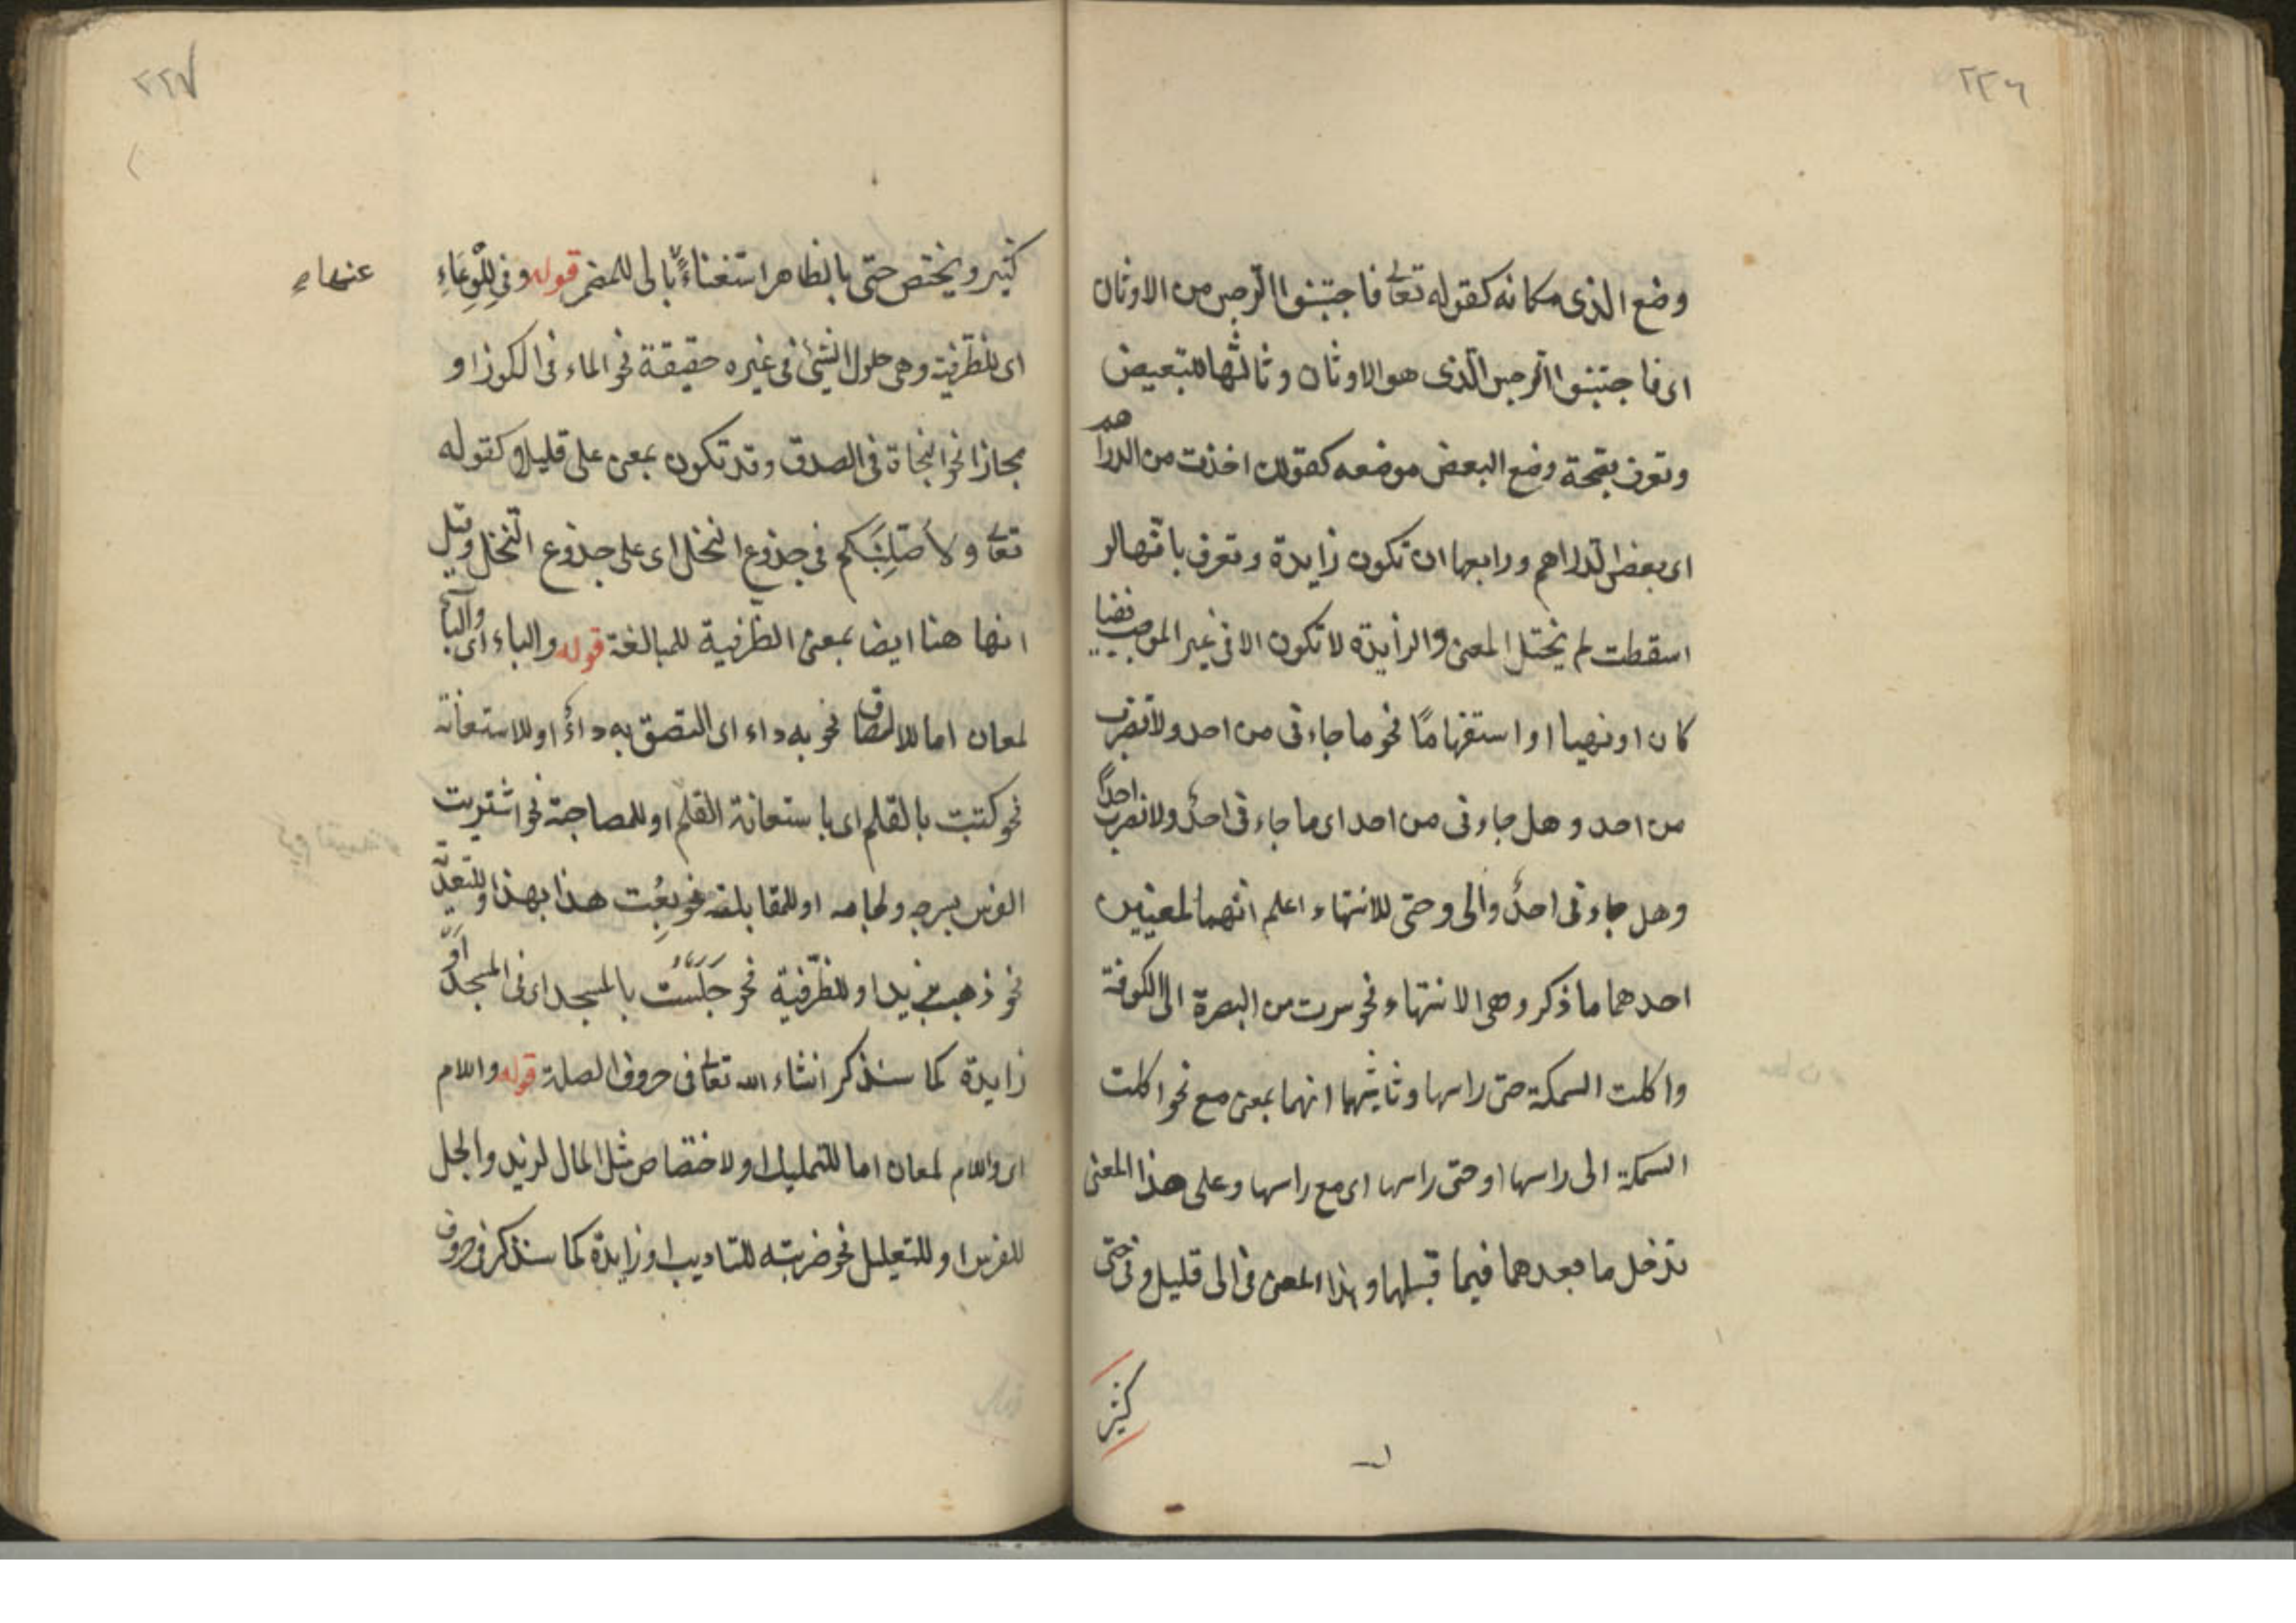 ٢٢٦
وضع الذى مكانه كقوله تعالى فاجتنبوا الرجس من الاوثان
اى فاجتنبوا الرجس الذى هو الاوثان وثالثها للتبعيض
وتعرف بصحة وضع البعض موضعه كقولك اخذت من الدراهم
اى بعض الدراهم ورابعها ان تكون زايدة وتعرف بانها لو
اسقطت لم يختل المعنى والزايدة لا تكون الا فى غير الموجب نفيا
كان او نهيا او استفهامًا نحو ما جاءنى من احد ولا تضرب
من احد وهل جاءنى من احد اى ما جاءنى احدٌ ولا تضرب احدًا
وهل جاءنى احدٌ والى وحتى للانتهاء اعلم انهما لمعنيين
احدهما ما ذكر وهى الانتهاء نحو سرت من البصرة الى الكوفة
واكلت السمكة حتى راسها وثانيهما انهما بمعنى مع نحو اكلت
السمكة الى راسها او حتى راسها اى مع راسها وعلى هذا المعنى
تدخل ما بعدهما فيما قبلها وهذا المعنى فى الى قليل وفى حتى
كثير
٢٢٧
كثير ويختص حتى بالظاهر استغناءً بالى للمضمر قوله وفِى لِلْوِعَاءِ
عنهاءِ
اى للظرفية وهى حلول الشئ فى غيره حقيقة نحو الماء فى الكوز او
مجازا نحو النجاة فى الصدق وقد تكون بمعنى على قليلا كقوله
تعالى ولأصَلِّبَنَّكم فى جذوع النخل اى على جذوع النخل وقيل
انها هنا ايضا بمعنى الظرفية للمبالغة قوله والباء اى والباء
لمعان اما للالصاق نحو به داء اى التصق به داءٌ او للاستعانة
نحو كتبت بالقلم اى باستعانة القلم او للمصاحبة نحو اشتريت
الفرس بسرجه ولجامه او للمقابلة نحو بِعُت هذا بهذا وللتعدّية
نحو ذهبت بزيد او للظرفية نحو جَلَسْتُ بالمسجد اى فى المسجد او
زايدة كما سنذكر انشاء الله تعالى فى حروف الصلة قوله واللام
اى واللام لمعان اما للتمليك او لاختصاص مثل المال لزيد والجل
للفرس او للتعليل نحو ضربته للتاديب او زايدة كما سنذكر فى حروف